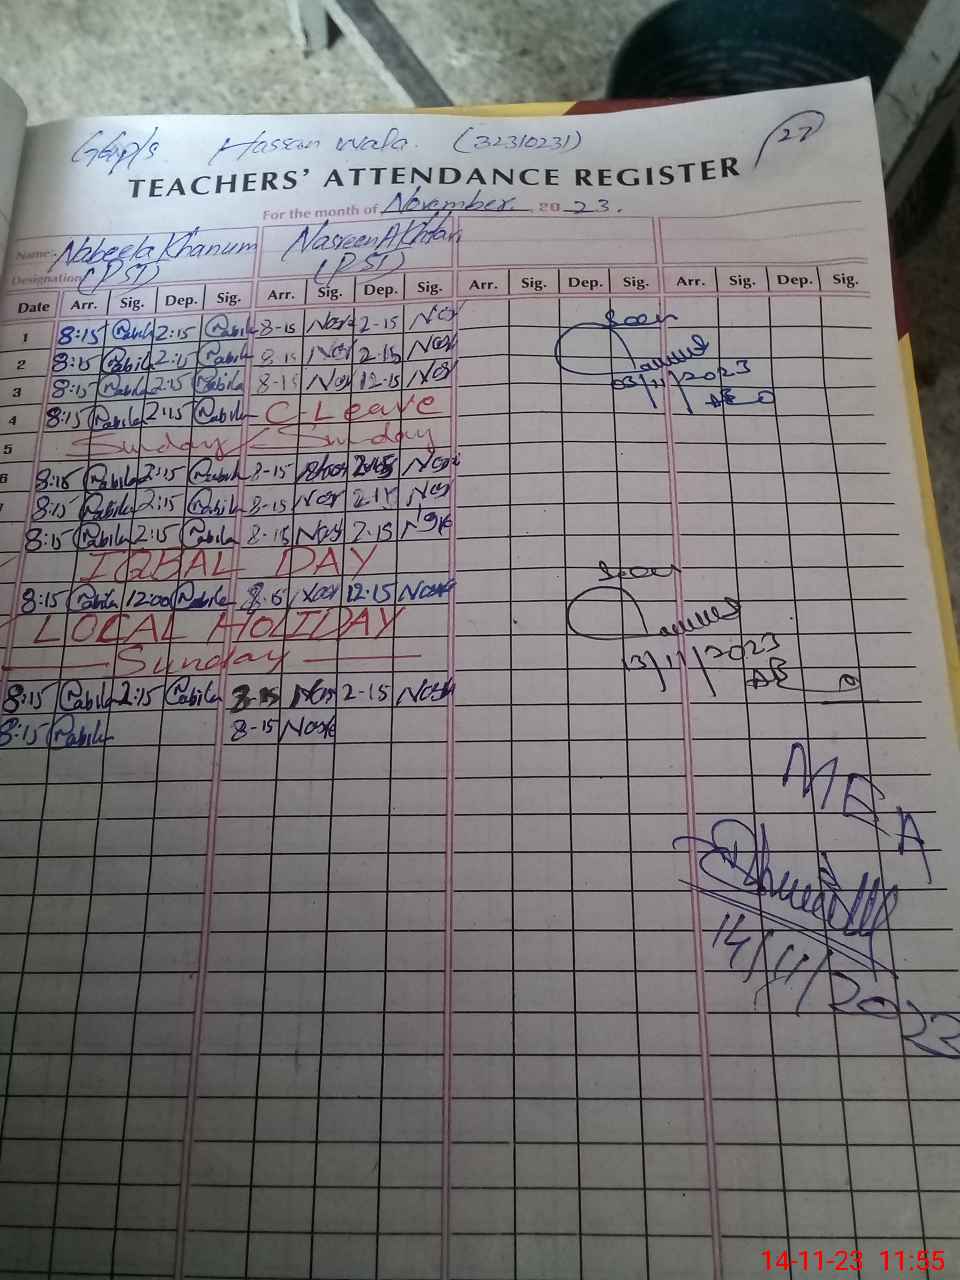 GGP/S. Hassan wala. (32310231) 27
TEACHERS' ATTENDANCE REGISTER
For the month of November. 2023.
Name: Nabeela Khanum Nasreen Akhtar
Designation (PST) (PST)
Date Arr. Sig. Dep. Sig. Arr. Sig. Dep. Sig. Arr. Sig. Dep. Sig. Arr. Sig. Dep. Sig.
1 8:15 Nabila 2:15 Nabila 8-15 2-15 Seen
2 8:15 Nabila 2:15 Nabila 8-15 2-15
3 8:15 Nabila 2:15 Nabila 8-15 12-15 03/11/2023
4 8:15 Nabila 2:15 Nabila C-Leave AEO
5 Sunday Sunday
6 8:15 Nabila 2:15 Nabila 8-15 2-15
8:15 Nabila 2:15 Nabila 8-15 2-15
8:15 Nabila 2:15 Nabila 8-15 2-15
IQBAL DAY
8:15 Nabila 12:00 Nabila 8-15 12-15 Seen
LOCAL HOLIDAY
Sunday 13/11/2023
8:15 Nabila 2:15 Nabila 8-15 2-15 AEO
8:15 Nabila 8-15
MEA
14/11/2023
14-11-23 11:55